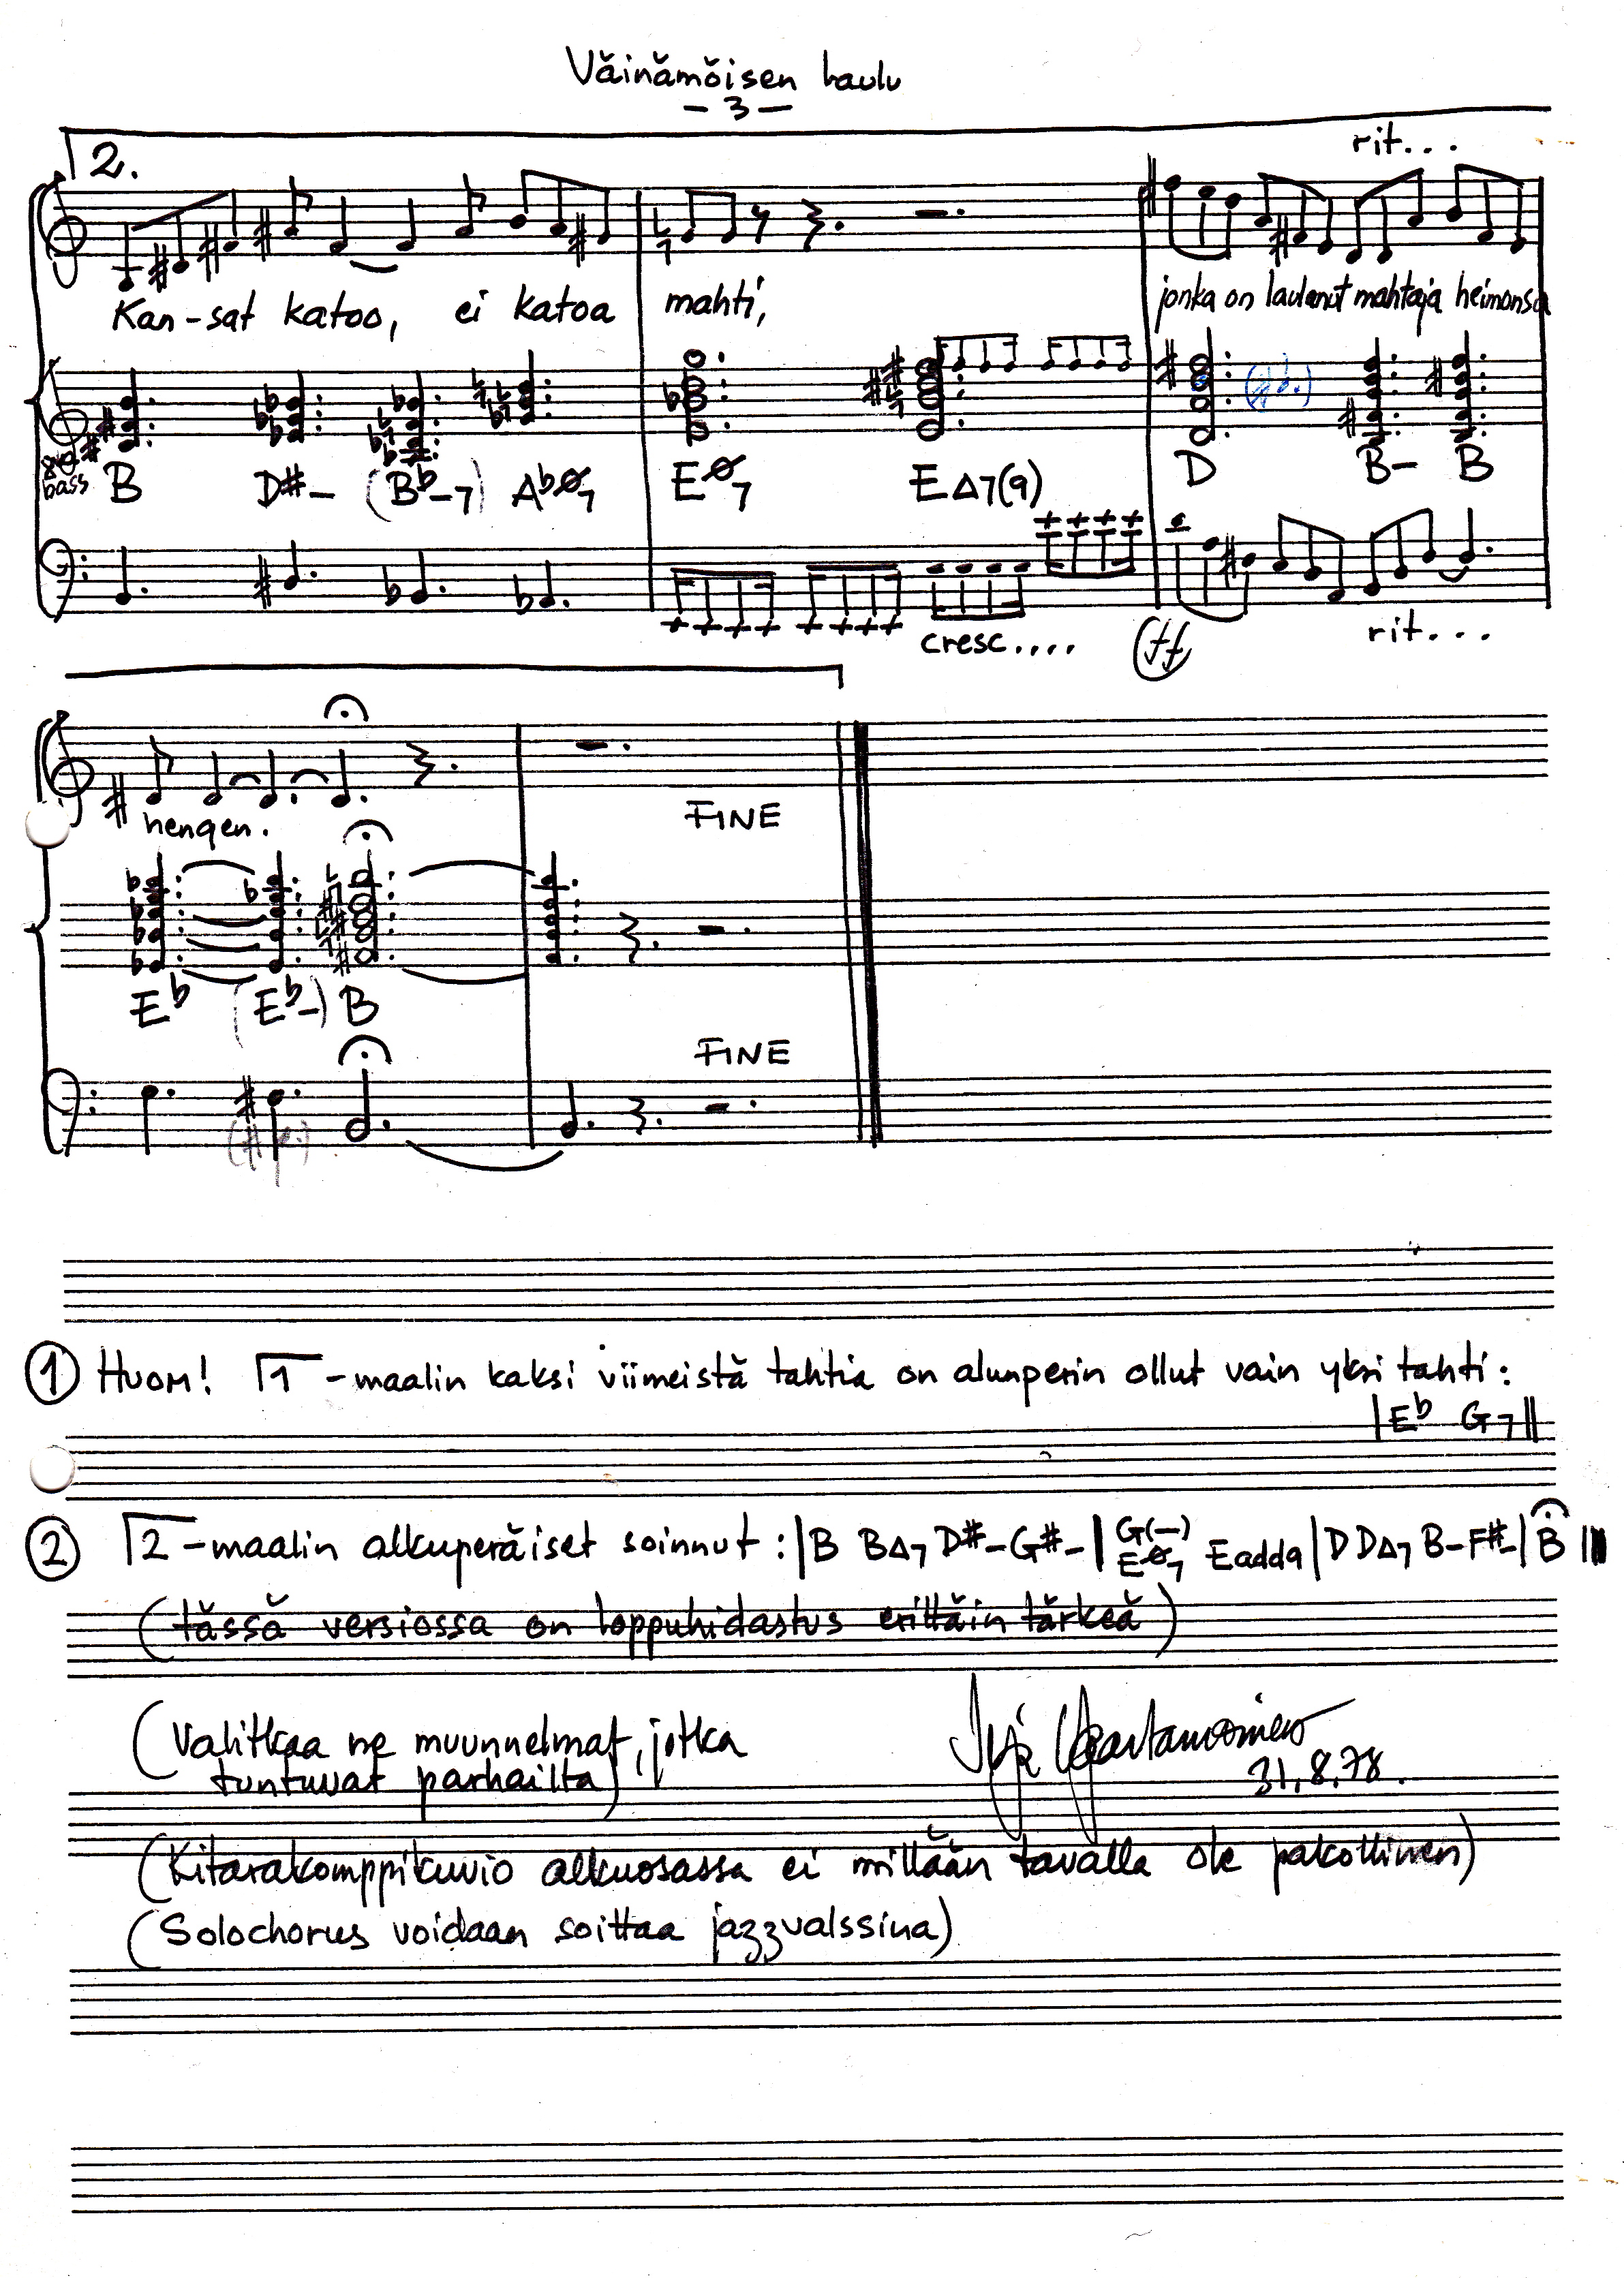 Väinämöisen laulu
– 3 –
2.
rit...
Kan-sat katoo, ei katoa mahti, jonka on laulanut mahtaja heimonsa
bass
B D#– (Bb–7) Abø7 Eø7 E△7(9) D B– B
cresc.... (ff) rit...
FINE
hengen.
Eb (Eb–) B
FINE
① HUOM! ⌈1 –maalin kaksi viimeistä tahtia on alunperin ollut vain yksi tahti:
|Eb G7||
② ⌈2 –maalin alkuperäiset soinnut: |B B△7 D#– G#–| G(–) Eø7 Eadd9 |D D△7 B– F#–| B ||
(tässä versiossa on loppuhidastus erittäin tärkeä)
(Valitkaa ne muunnelmat, jotka
tuntuvat parhailta)
31.8.78.
(Kitarakomppikuvio alkuosassa ei millään tavalla ole pakollinen)
(Solochorus voidaan soittaa jazzvalssina)